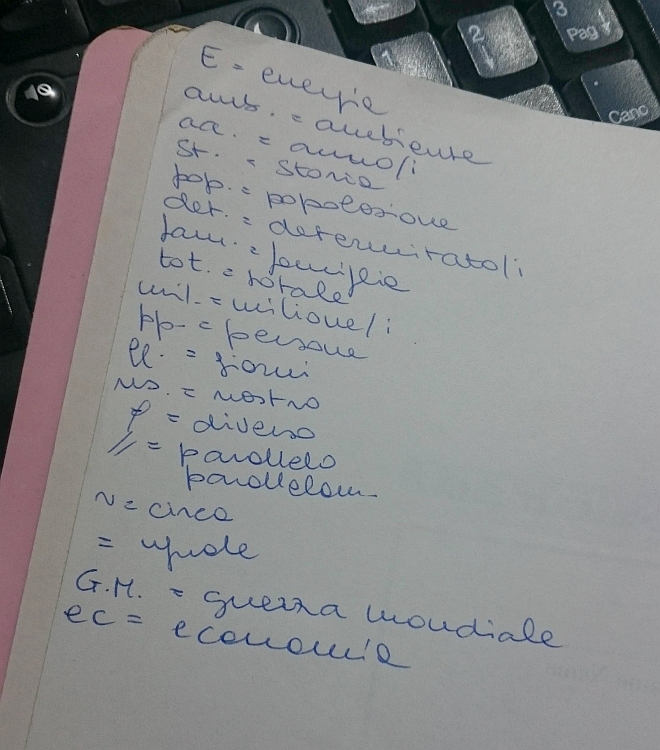 1
2
3
Pag
Canc
E = energia
amb. = ambiente
aa. = anno/i
st. = storia
pop. = popolazione
det. = determinato/i
fam. = famiglia
tot. = totale
mil. = milione/i
pp. = persone
gg. = giorni
ns. = nostro
≠ = diverso
// = parallelo
parallelam.
~ = circa
= uguale
G.M. = guerra mondiale
ec = economia